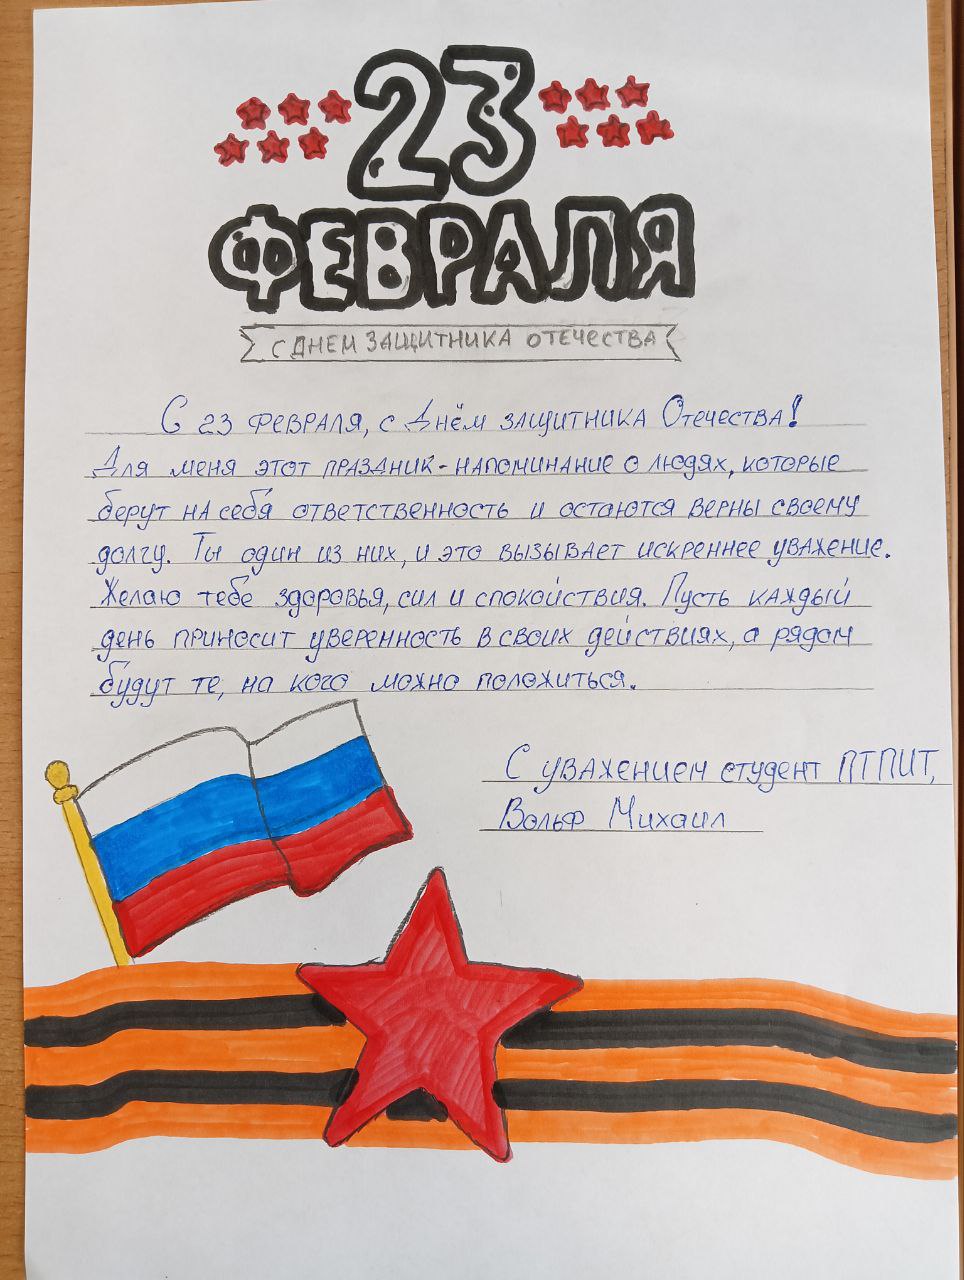 23
ФЕВРАЛЯ
С ДНЕМ ЗАЩИТНИКА ОТЕЧЕСТВА
С 23 февраля, с Днём защитника Отечества!
Для меня этот праздник - напоминание о людях, которые
берут на себя ответственность и остаются верны своему
долгу. Ты один из них, и это вызывает искреннее уважение.
Желаю тебе здоровья, сил и спокойствия. Пусть каждый
день приносит уверенность в своих действиях, а рядом
будут те, на кого можно положиться.
С уважением студент ПТПИТ,
Вольф Михаил